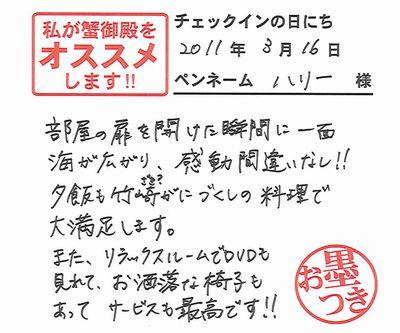 私が蟹御殿を
オススメ
します!!
チェックインの日にち
2011年 3月16日
ペンネーム ハリー 様
部屋の扉を開けた瞬間に一面
海が広がり、感動間違いなし!!
夕飯も竹崎がにづくしの料理で
大満足します。
また、リラックスルームでDVDも
見れて、お洒落な椅子も
あって サービスも最高です!!
お墨つき